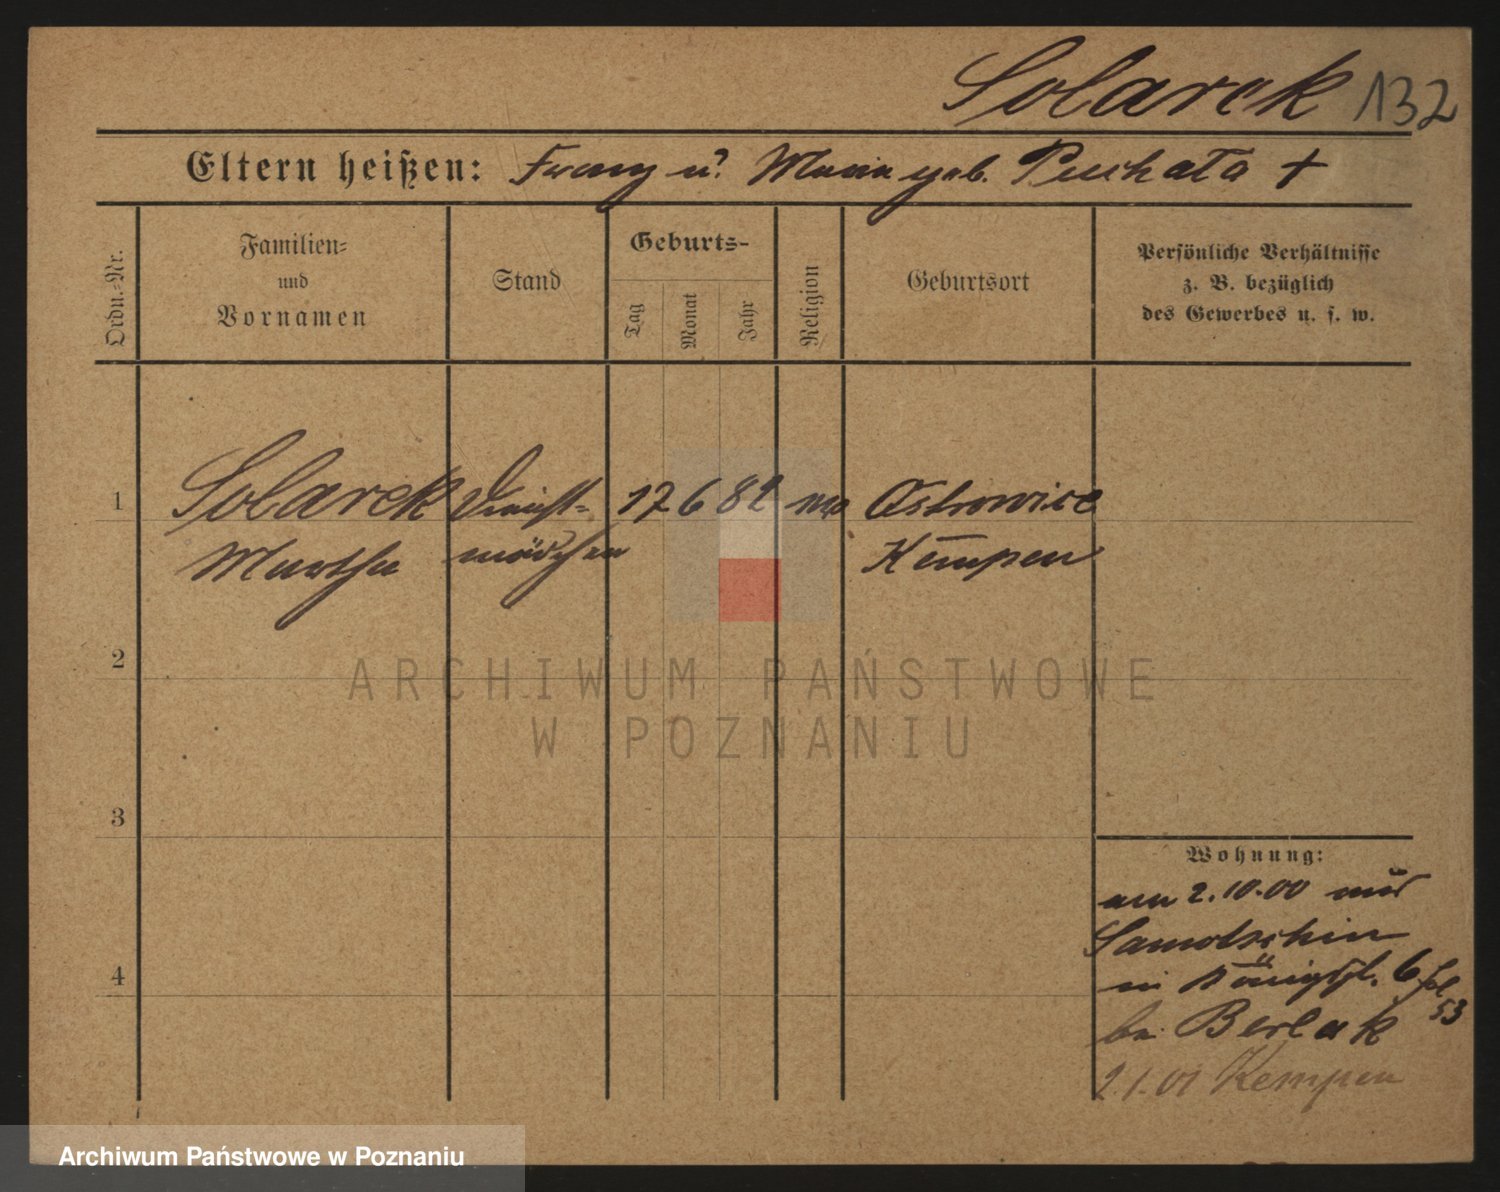 Solarek 132
Eltern heißen: Franz u. Maria geb. Puchata +
Ordn.-Nr.
Familien-
und
Vornamen
Stand
Geburts-
Tag
Monat
Jahr
Religion
Geburtsort
Persönliche Verhältnisse
z. B. bezüglich
des Gewerbes u. s. w.
1 Solarek Dienst- 17 6 82 Ostrowice
Martha mädchen Kempen
2
3
4
Wohnung:
am 2.10.00 aus
Samotschin
in Königspl. 6
53
bei Berlak
2.1.01 Kempen
ARCHIWUM PAŃSTWOWE
W POZNANIU
Archiwum Państwowe w Poznaniu